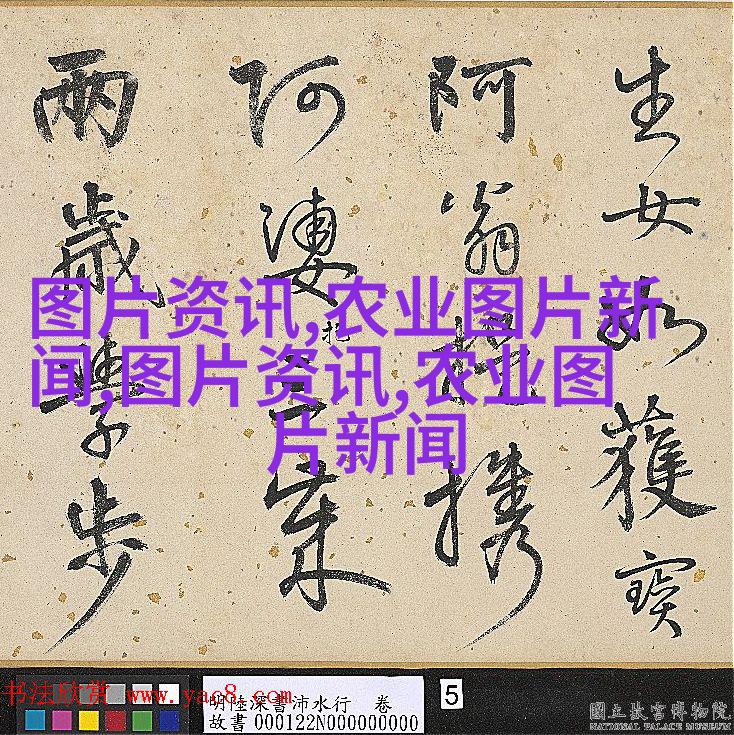 生女如獲寶
阿翁攜
阿婆
兩歲學步
图片资讯,农业图片新
闻,图片资讯,农业图
片新闻
书法欣赏 www.yac8.com
明陸深書沛水行 卷
故書 000122N000000000
5
國立故宮博物院
NATIONAL PALACE MUSEUM